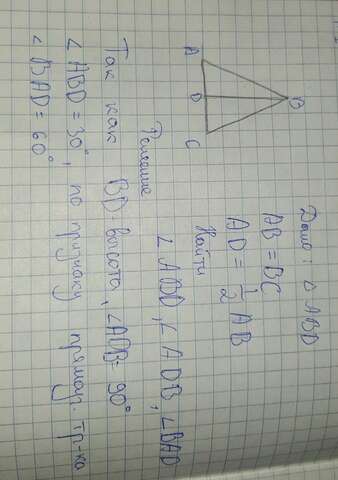 B
A D C
Дано: △ ABD
AB = BC
AD = 1/2 AB
Найти
∠ ABD, ∠ ADB, ∠BAD
Решение
Так как BD-высота, ∠ADB= 90°
∠ ABD = 30°, по признаку прямоуг. тр-ка
∠ BAD = 60°